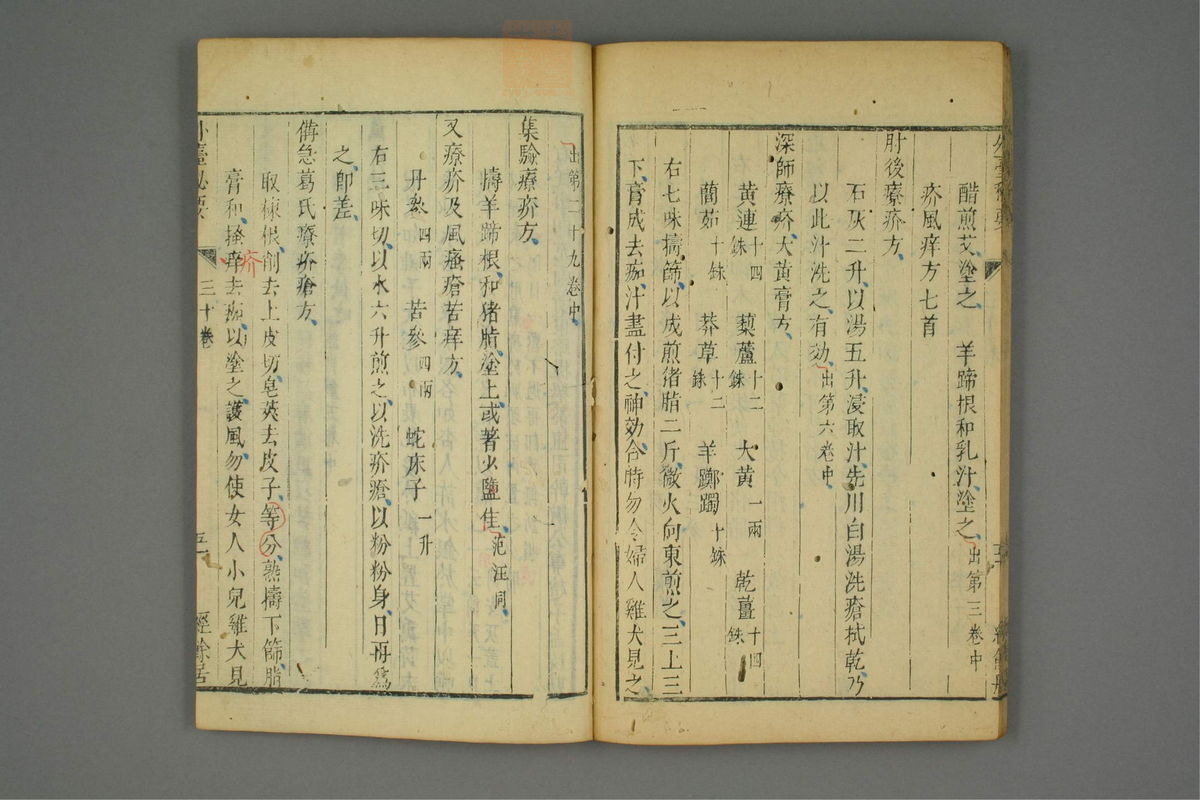 醋煎艾塗之　羊蹄根和乳汁塗之出第三卷中
疥風痒方七首
肘後療疥方
石灰二升以湯五升浸取汁先用白湯洗瘡拭乾乃
以此汁洗之有効出第六卷中
深師療疥大黃膏方
黃連十四銖　藜蘆十二銖　大黃一兩　乾薑十四銖
䕡茹十銖　莽草十二銖　羊躑躅十銖
右七味擣篩以成煎猪脂二斤微火向東煎之三上三
下膏成去痂汁盡付之神効合時勿令婦人雞犬見之
出第二十九卷中
集驗療疥方
擣羊蹄根和猪脂塗上或著少鹽佳范汪同
又療疥及風瘙瘡苦痒方
丹參四兩　苦參四兩　蛇床子一升
右三味切以水六升煎之以洗疥瘡以粉粉身日再爲
之即差
備急葛氏療疥瘡方
取楝根削去上皮切皂莢去皮子等分熟擣下篩脂
膏和搔痒去痂以塗之護風勿使女人小兒雞犬見
疥
外臺祕要　三十卷　五　經餘居